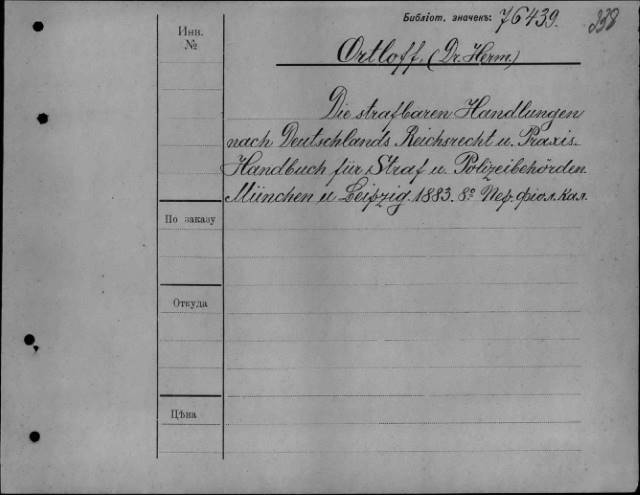 Библіот. значекъ: 76439. 338
Инв. №
Ortloff, (Dr. Herm.)
Die strafbaren Handlungen
nach Deutschlands Reichsrecht u. Praxis.
Handbuch für Straf u. Polizeibehörden.
München u Leipzig. 1883. 8º Пер. фіол. кал.
По заказу
Откуда
Цѣна